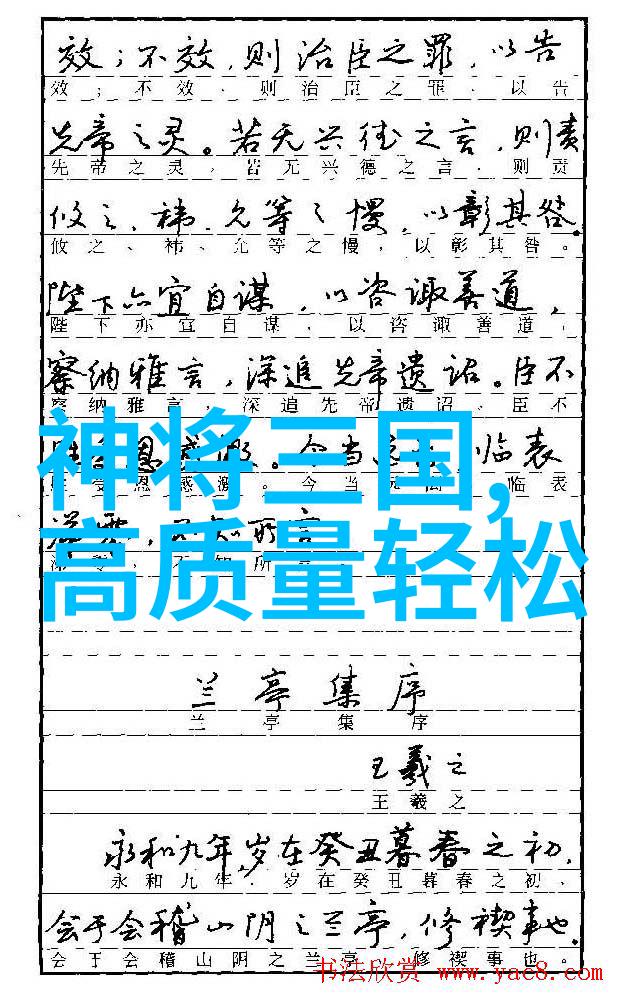 效；不效，则治臣之罪，以告
效；不效、则治臣之罪、以告
先帝之灵。若无兴德之言，则责
先帝之灵，若无兴德之言、则责
攸之、祎、允等之慢，以彰其咎。
攸之、祎、允等之慢，以彰其咎。
陛下亦宜自谋，以咨诹善道，
陛下亦宜自谋，以咨诹善道，
察纳雅言，深追先帝遗诏。臣不
察纳雅言，深追先帝遗诏。臣不
恩感激。今当 临表
受恩感激。今当 临表
神将三国，
所言
不知所
高质量轻松
兰亭集序
兰亭集序
王羲之
王羲之
永和九年，岁在癸丑暮春之初，
永和九年，岁在癸丑暮春之初、
会于会稽山阴之兰亭，修禊事也。
会于会稽山阴之兰亭，修禊事也。
书法欣赏 www.yac8.com